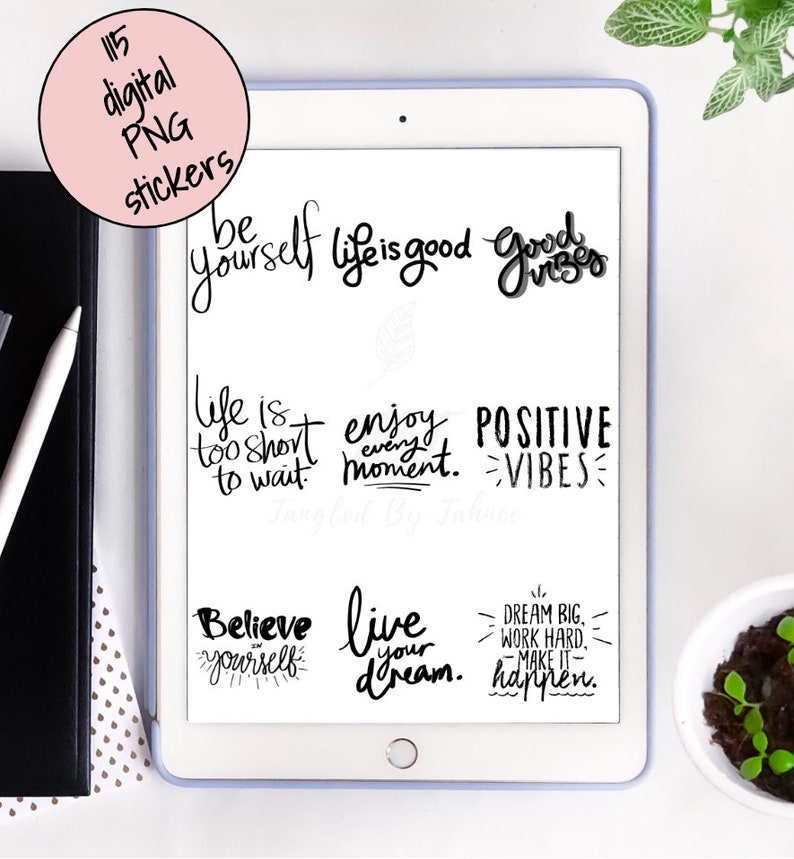 115
digital
PNG
stickers
be
yourself
life is good
good
vibes
life is
too short
to wait.
enjoy
every
moment.
POSITIVE
VIBES
Tangled By Jahnee
Believe
IN
yourself
live
your
dream.
DREAM BIG,
WORK HARD,
MAKE IT
happen.